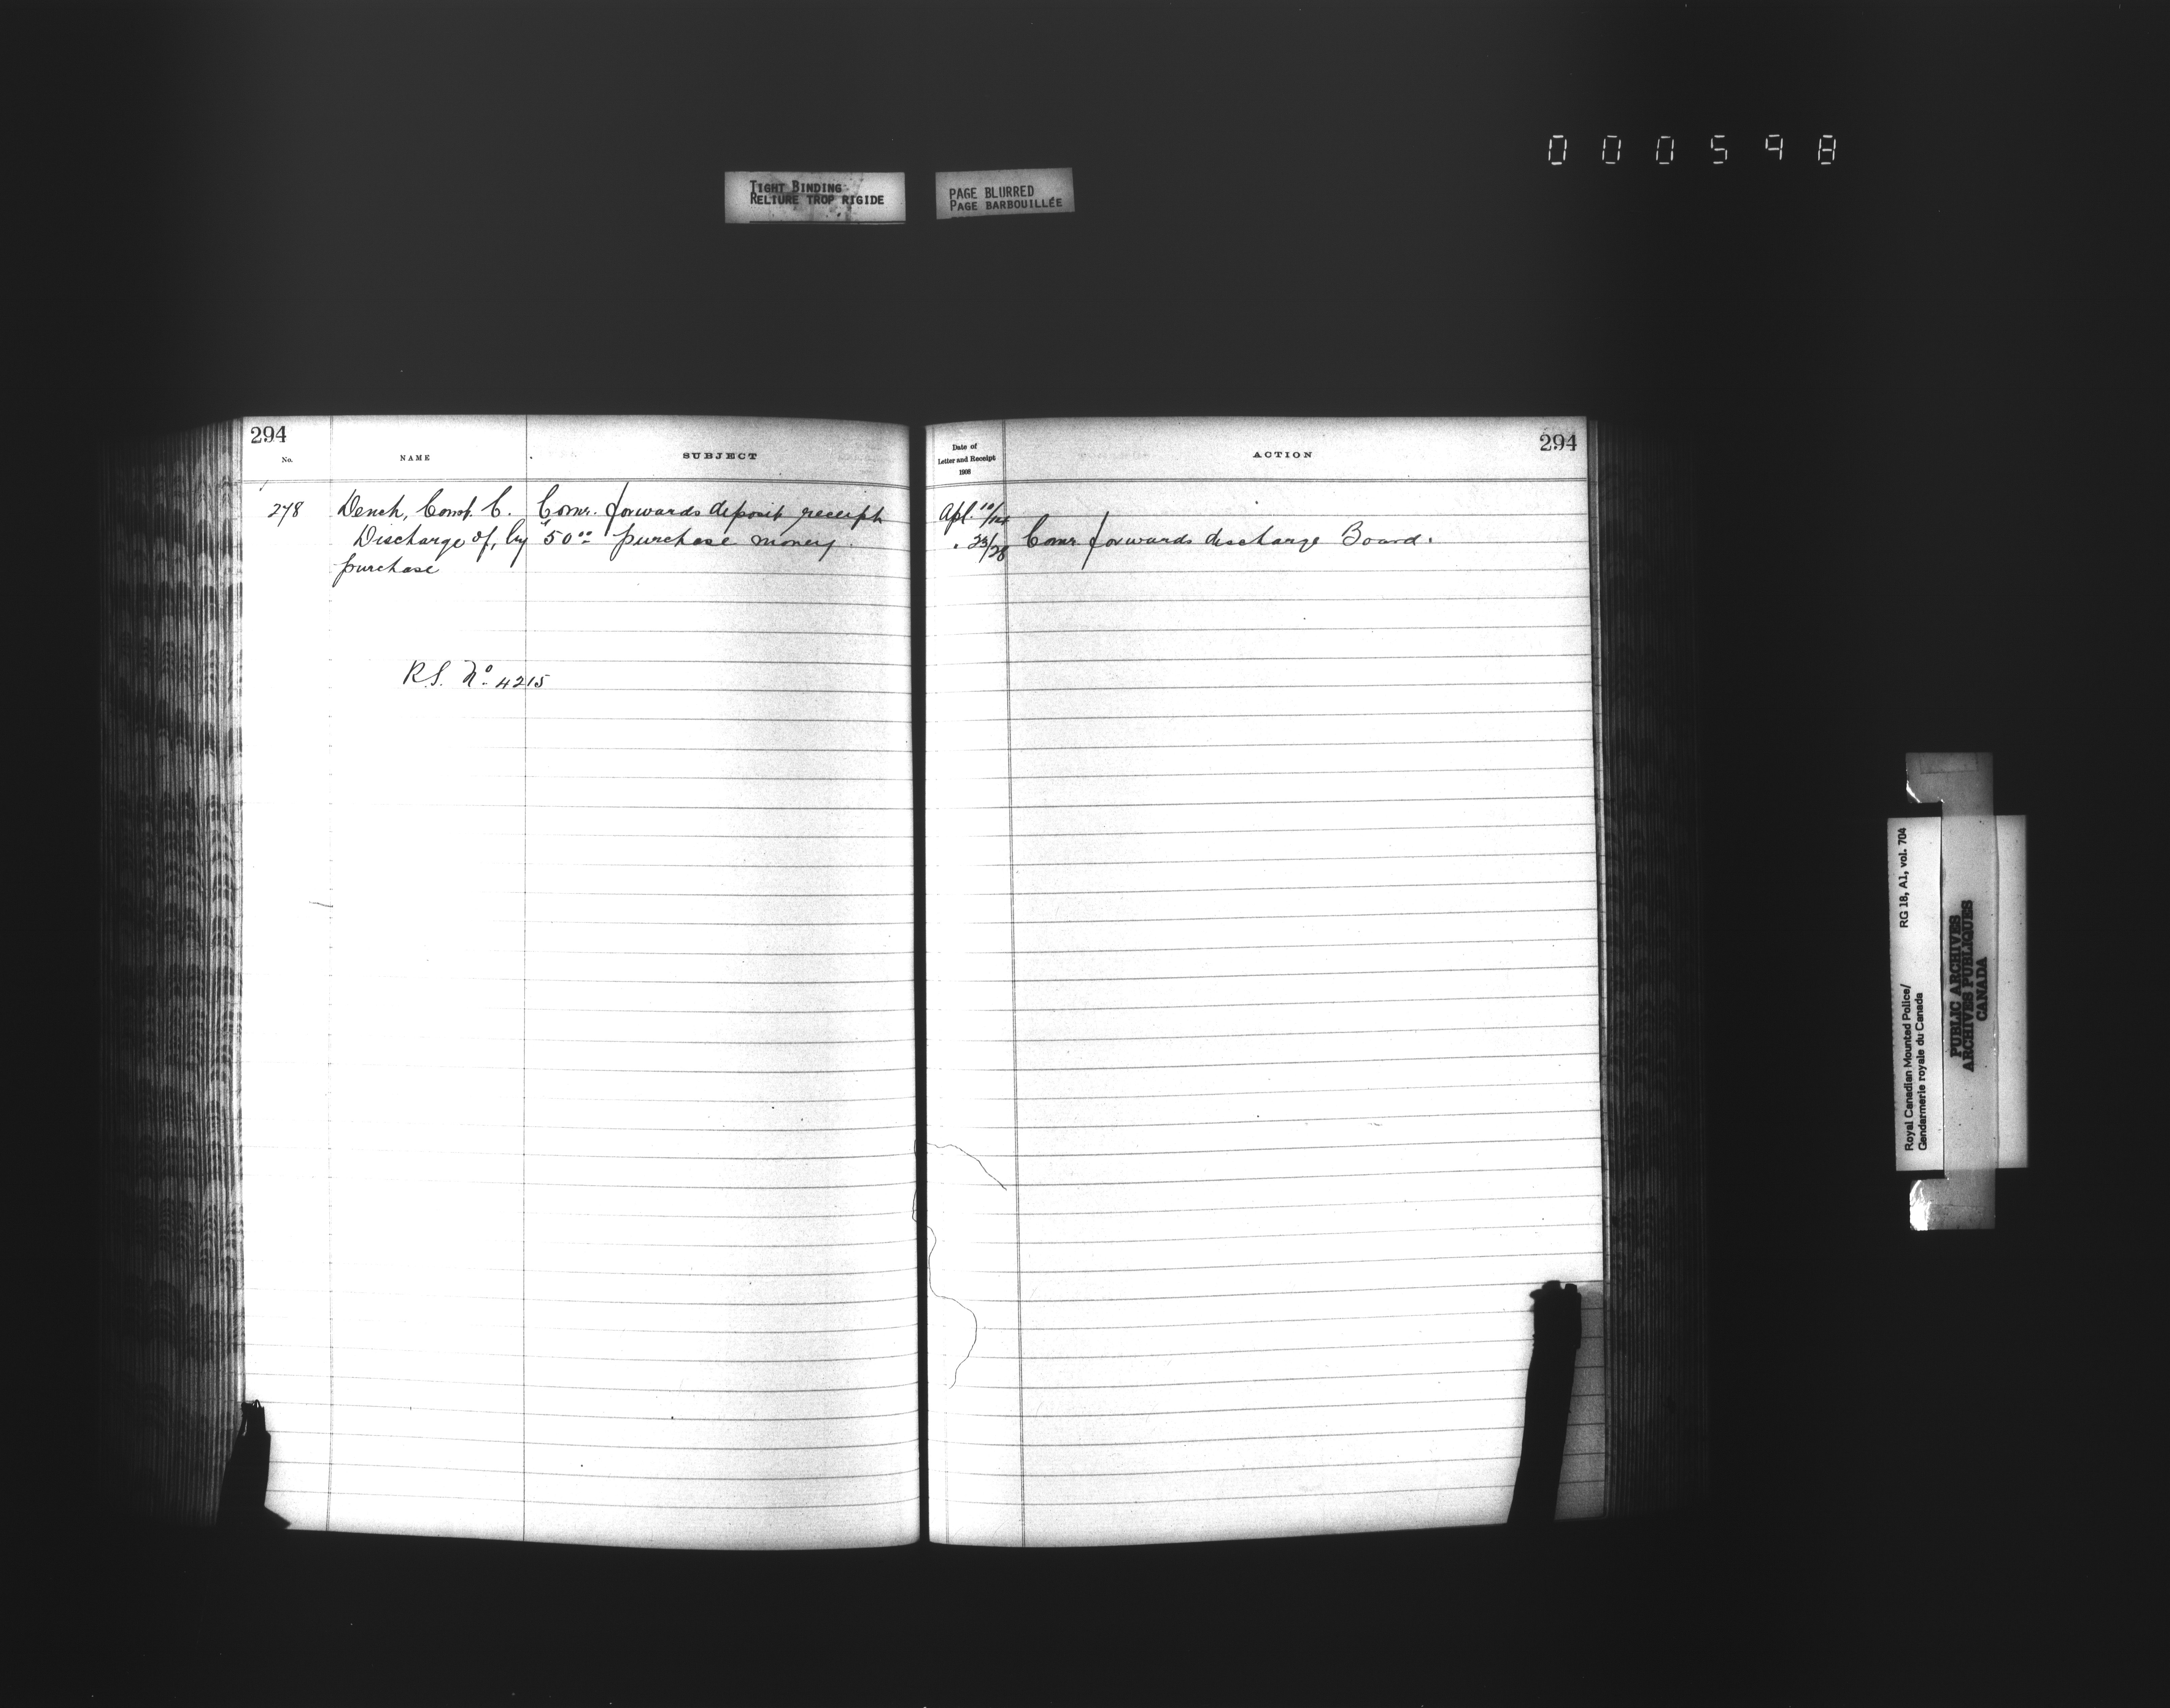 000598
TIGHT BINDING
RELIURE TROP RIGIDE
PAGE BLURRED
PAGE BARBOUILLÉE
294
No.
NAME
SUBJECT
278 Dench, Const. C. Comr. forwards deposit receipt
Discharge of, by $50.00 purchase money.
purchase
R.S. No. 4215
294
Date of
Letter and Receipt
1908
ACTION
Apl. 10/14
" 23/28 Comr. forwards discharge Board.
Royal Canadian Mounted Police/
Gendarmerie royale du Canada
RG 18, A1, vol. 704
PUBLIC ARCHIVES
ARCHIVES PUBLIQUES
CANADA